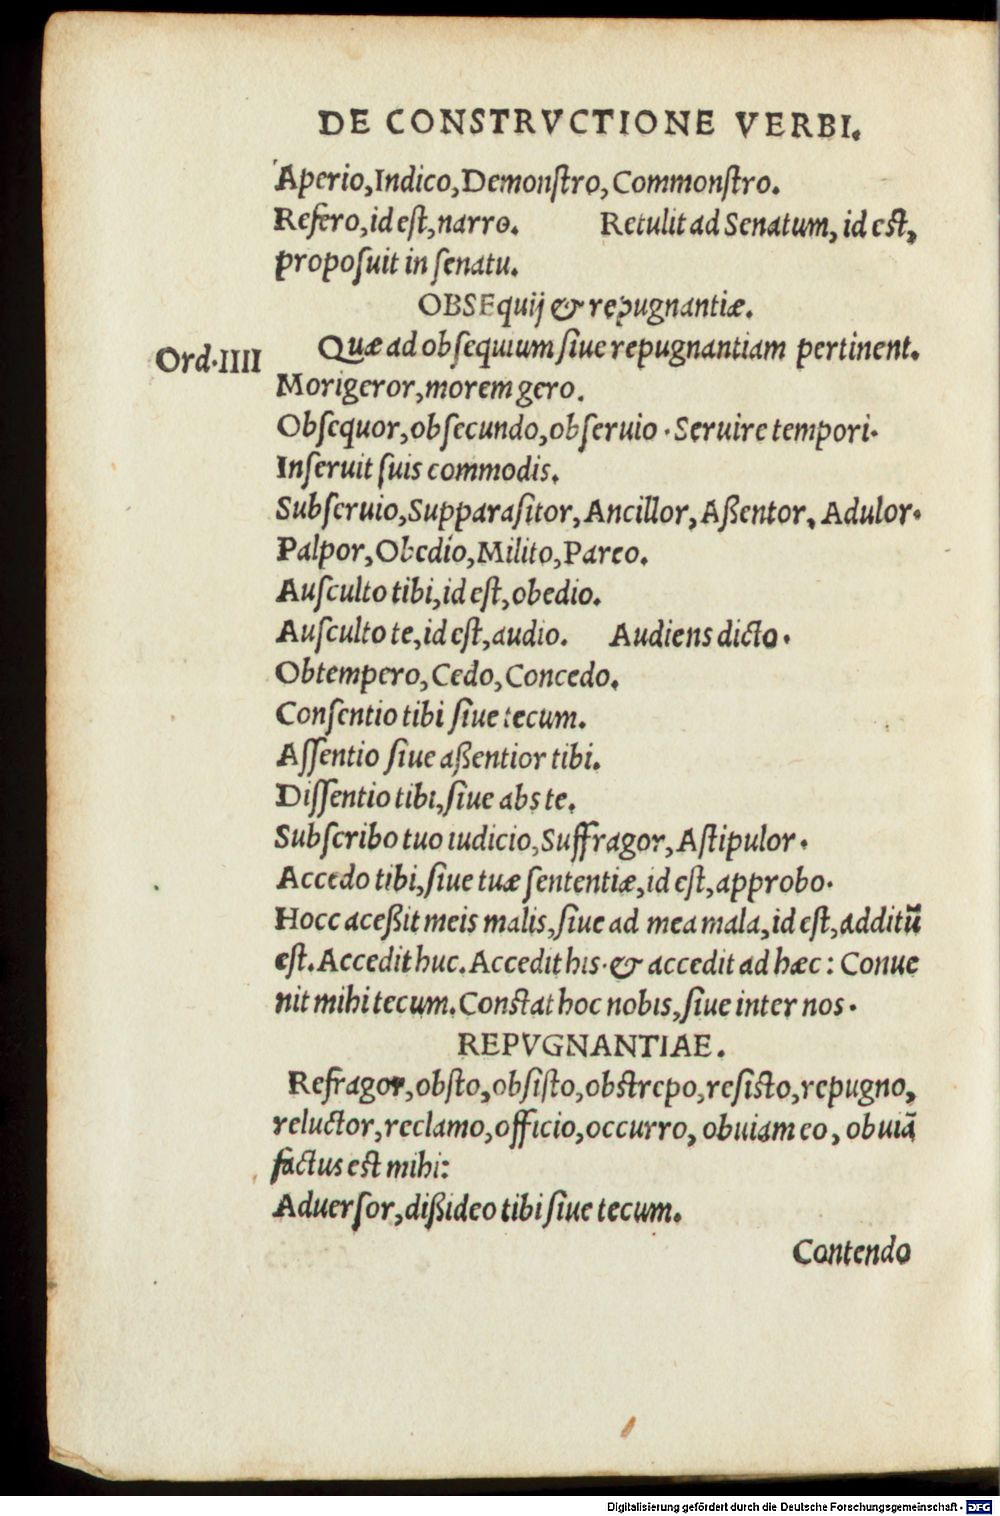 DE CONSTRVCTIONE VERBI.
Aperio,Indico,Demonſtro,Commonſtro.
Refero,id eſt,narro. Retulit ad Senatum, id eſt,
propoſuit in ſenatu.
OBSEquij & repugnantiæ.
Ord·IIII Quæ ad obſequium ſiue repugnantiam pertinent.
Morigeror,morem gero.
Obſequor,obſecundo,obſeruio · Seruire tempori·
Inſeruit ſuis commodis.
Subſeruio,Supparaſitor,Ancillor,Aßentor, Adulor·
Palpor,Obedio,Milito,Pareo.
Auſculto tibi,id eſt,obedio.
Auſculto te,id eſt,audio. Audiens dicto·
Obtempero,Cedo,Concedo.
Conſentio tibi ſiue tecum.
Aſſentio ſiue aßentior tibi.
Diſſentio tibi,ſiue abs te.
Subſcribo tuo iudicio,Suffragor,Aſtipulor·
Accedo tibi,ſiue tuæ ſententiæ,id eſt,approbo·
Hocc aceßit meis malis,ſiue ad mea mala,id eſt,additū
eſt.Accedit huc.Accedit his·& accedit ad hæc: Conue
nit mihi tecum.Conſtat hoc nobis,ſiue inter nos·
REPVGNANTIAE.
Refragor,obſto,obſiſto,obſtrepo,reſiſto,repugno,
reluctor,reclamo,officio,occurro, obuiam eo, obuiā
factus eſt mihi:
Aduerſor,dißideo tibi ſiue tecum.
Contendo
Digitalisierung gefördert durch die Deutsche Forschungsgemeinschaft · DFG